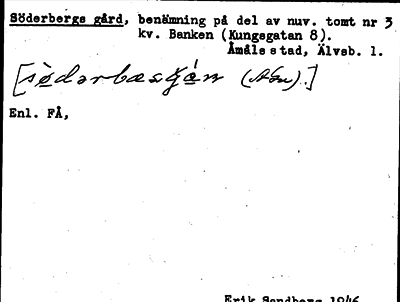 Söderbergs gård, benämning på del av nuv. tomt nr 3
kv. Banken (Kungsgatan 8).
Åmåls stad, Älvsb. l.
Enl. FÅ,
Erik Sandberg 1946